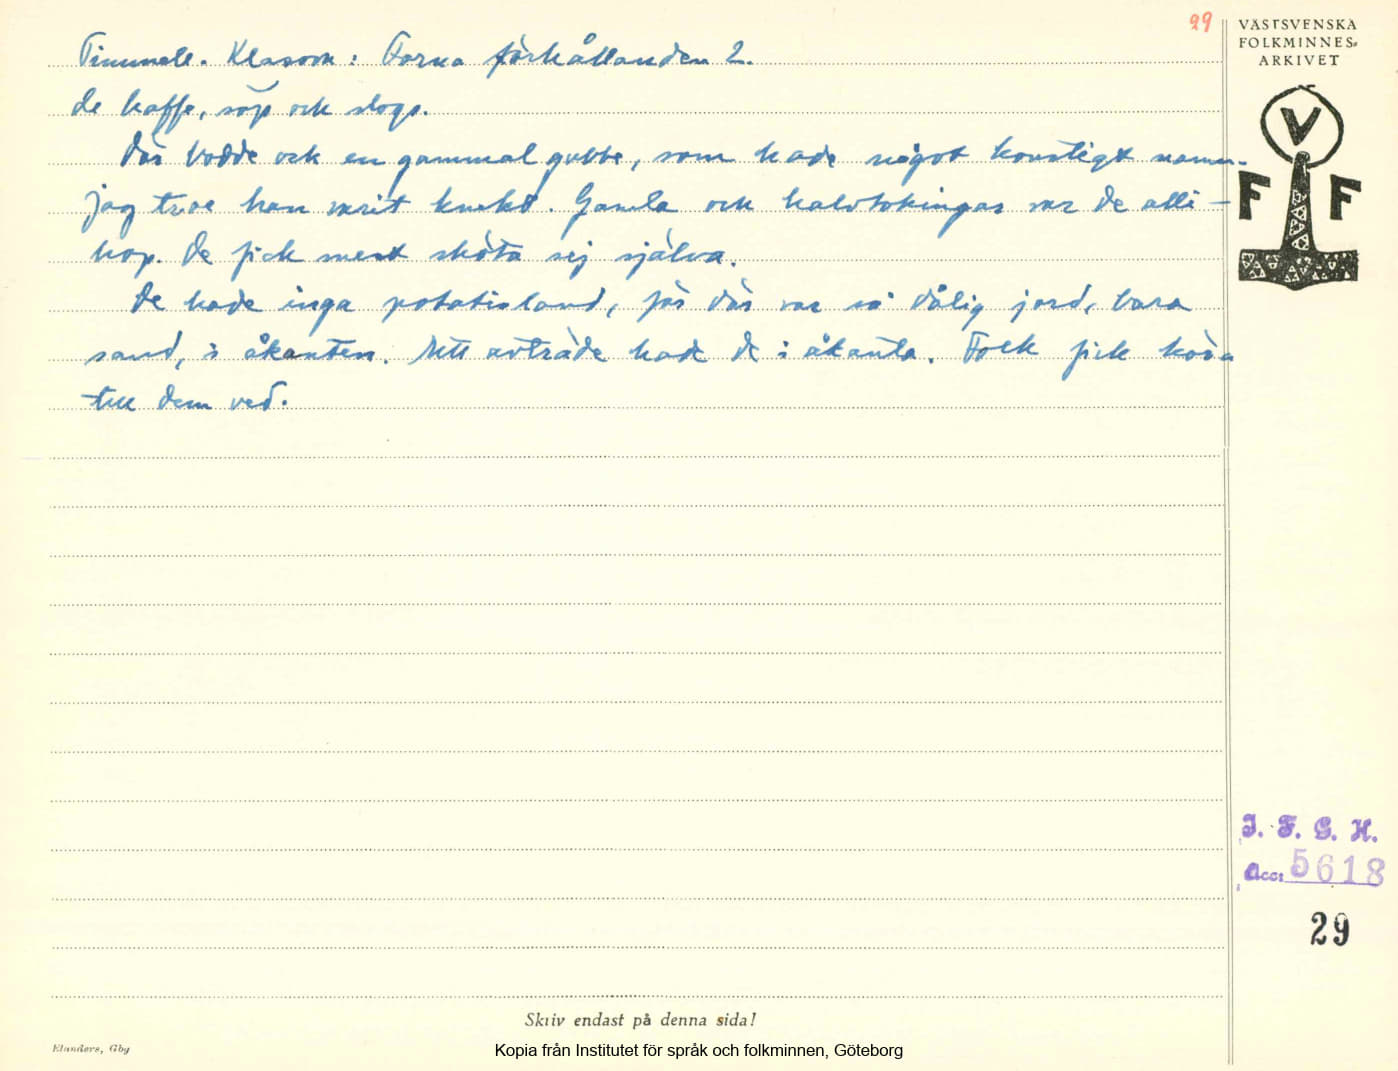 29
VÄSTSVENSKA
FOLKMINNES-
ARKIVET
V
F F
Timmele. Klasson: Forna förhållanden 2.
de kaffe, söp och slogs.
Där bodde ock en gammal gubbe, som hade något konstigt namn-
jag tror han varit knekt. Gamla och halvtokingar var de alli-
hop. De fick mest sköta sej själva.
De hade inga potatisland, för där var så dålig jord, bara
sand, i åkanten. Nåt avträde hade de i åkanta. Folk fick köra
till dem ved.
I. F. G. H.
Acc: 5618
29
Skriv endast på denna sida!
Elanders, Gbg
Kopia från Institutet för språk och folkminnen, Göteborg